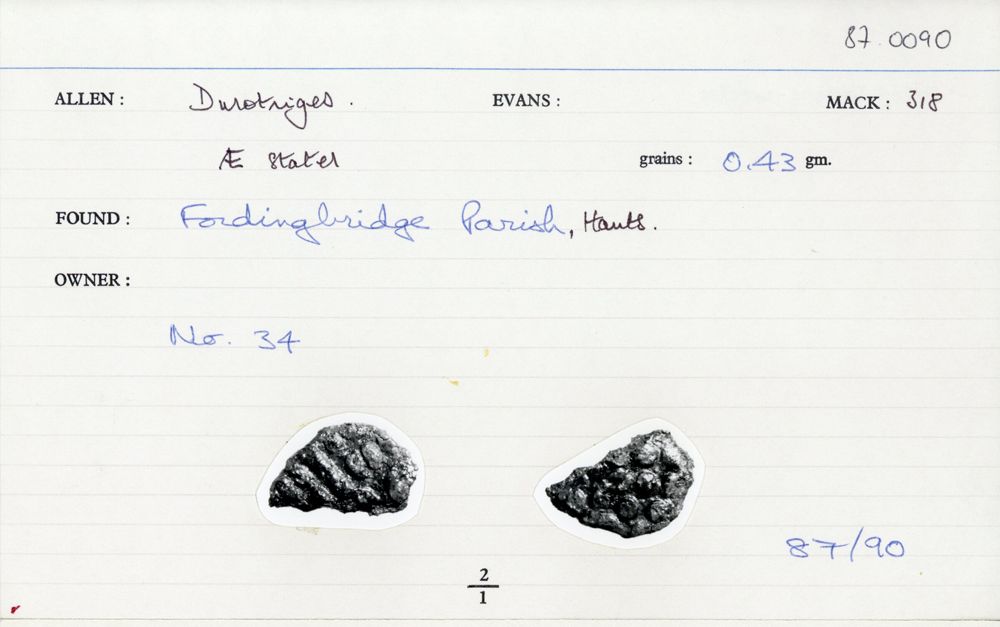 87.0090
ALLEN: Durotriges. EVANS: MACK: 318
Æ Stater grains: 0.43 gm.
FOUND: Fordingbridge Parish, Hants.
OWNER:
No. 34
87/90
2
1